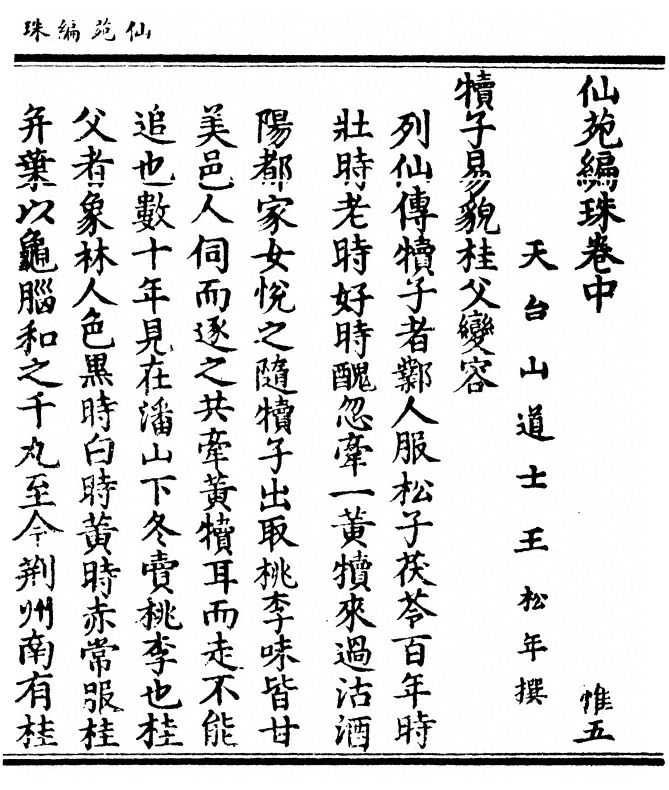 仙苑編珠
仙苑編珠卷中
惟五
天台山道士王松年撰
犢子易貌桂父變容
列仙傳犢子者鄴人服松子茯苓百年時
壯時老時好時醜忽牽一黃犢來過沽酒
陽都家女悅之隨犢子出取桃李味皆甘
美邑人伺而逐之共牽黃犢耳而走不能
追也數十年見在潘山下冬賣桃李也桂
父者象林人色黑時白時黃時赤常服桂
并葉以龜腦和之千丸至今荆州南有桂